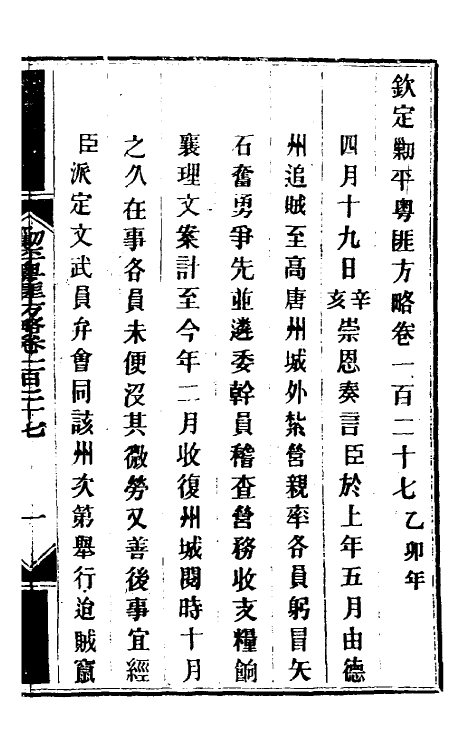 欽定剿平粵匪方略卷一百二十七 乙卯年
四月十九日辛亥崇恩奏言臣於上年五月由德
州追賊至高唐州城外紮營親率各員躬冒矢
石奮勇爭先並遴委幹員稽查營務收支糧餉
襄理文案計至今年二月收復州城閱時十月
之久在事各員未便沒其微勞又善後事宜經
臣派定文武員弁會同該州次第舉行迨賊竄
剿平粵匪方略卷一百二十七 一